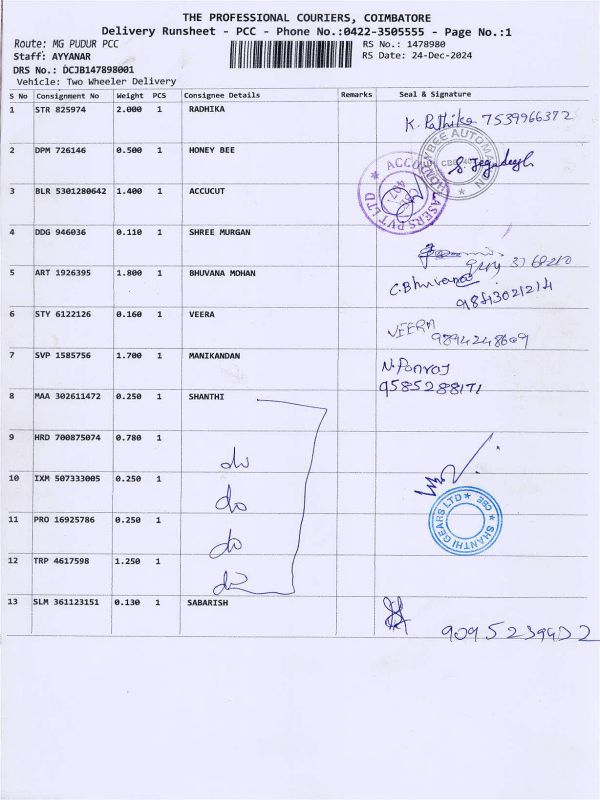 THE PROFESSIONAL COURIERS, COIMBATORE
Delivery Runsheet - PCC - Phone No.:0422-3505555 - Page No.:1
Route: MG PUDUR PCC
RS No.: 1478980
Staff: AYYANAR
RS Date: 24-Dec-2024
DRS No.: DCJB147898001
Vehicle: Two Wheeler Delivery
S No Consignment No Weight PCS Consignee Details Remarks Seal & Signature
1 STR 825974 2.000 1 RADHIKA
K. Rathika 7539966372
2 DPM 726146 0.500 1 HONEY BEE
HONEYBEE AUTOMATION
3 BLR 5301280642 1.400 1 ACCUCUT
LASERS PVT LTD
4 DDG 946036 0.110 1 SHREE MURGAN
5 ART 1926395 1.800 1 BHUVANA MOHAN
C.Bhuvana
9843021214
6 STY 6122126 0.160 1 VEERA
VEERA
9894248609
7 SVP 1585756 1.700 1 MANIKANDAN
N.Ponraj
9585288171
8 MAA 302611472 0.250 1 SHANTHI
9 HRD 700875074 0.780 1
do
10 IXM 507333005 0.250 1
do
SHANTHI GEARS LTD * CBE *
11 PRO 16925786 0.250 1
do
12 TRP 4617598 1.250 1
do
13 SLM 361123151 0.130 1 SABARISH